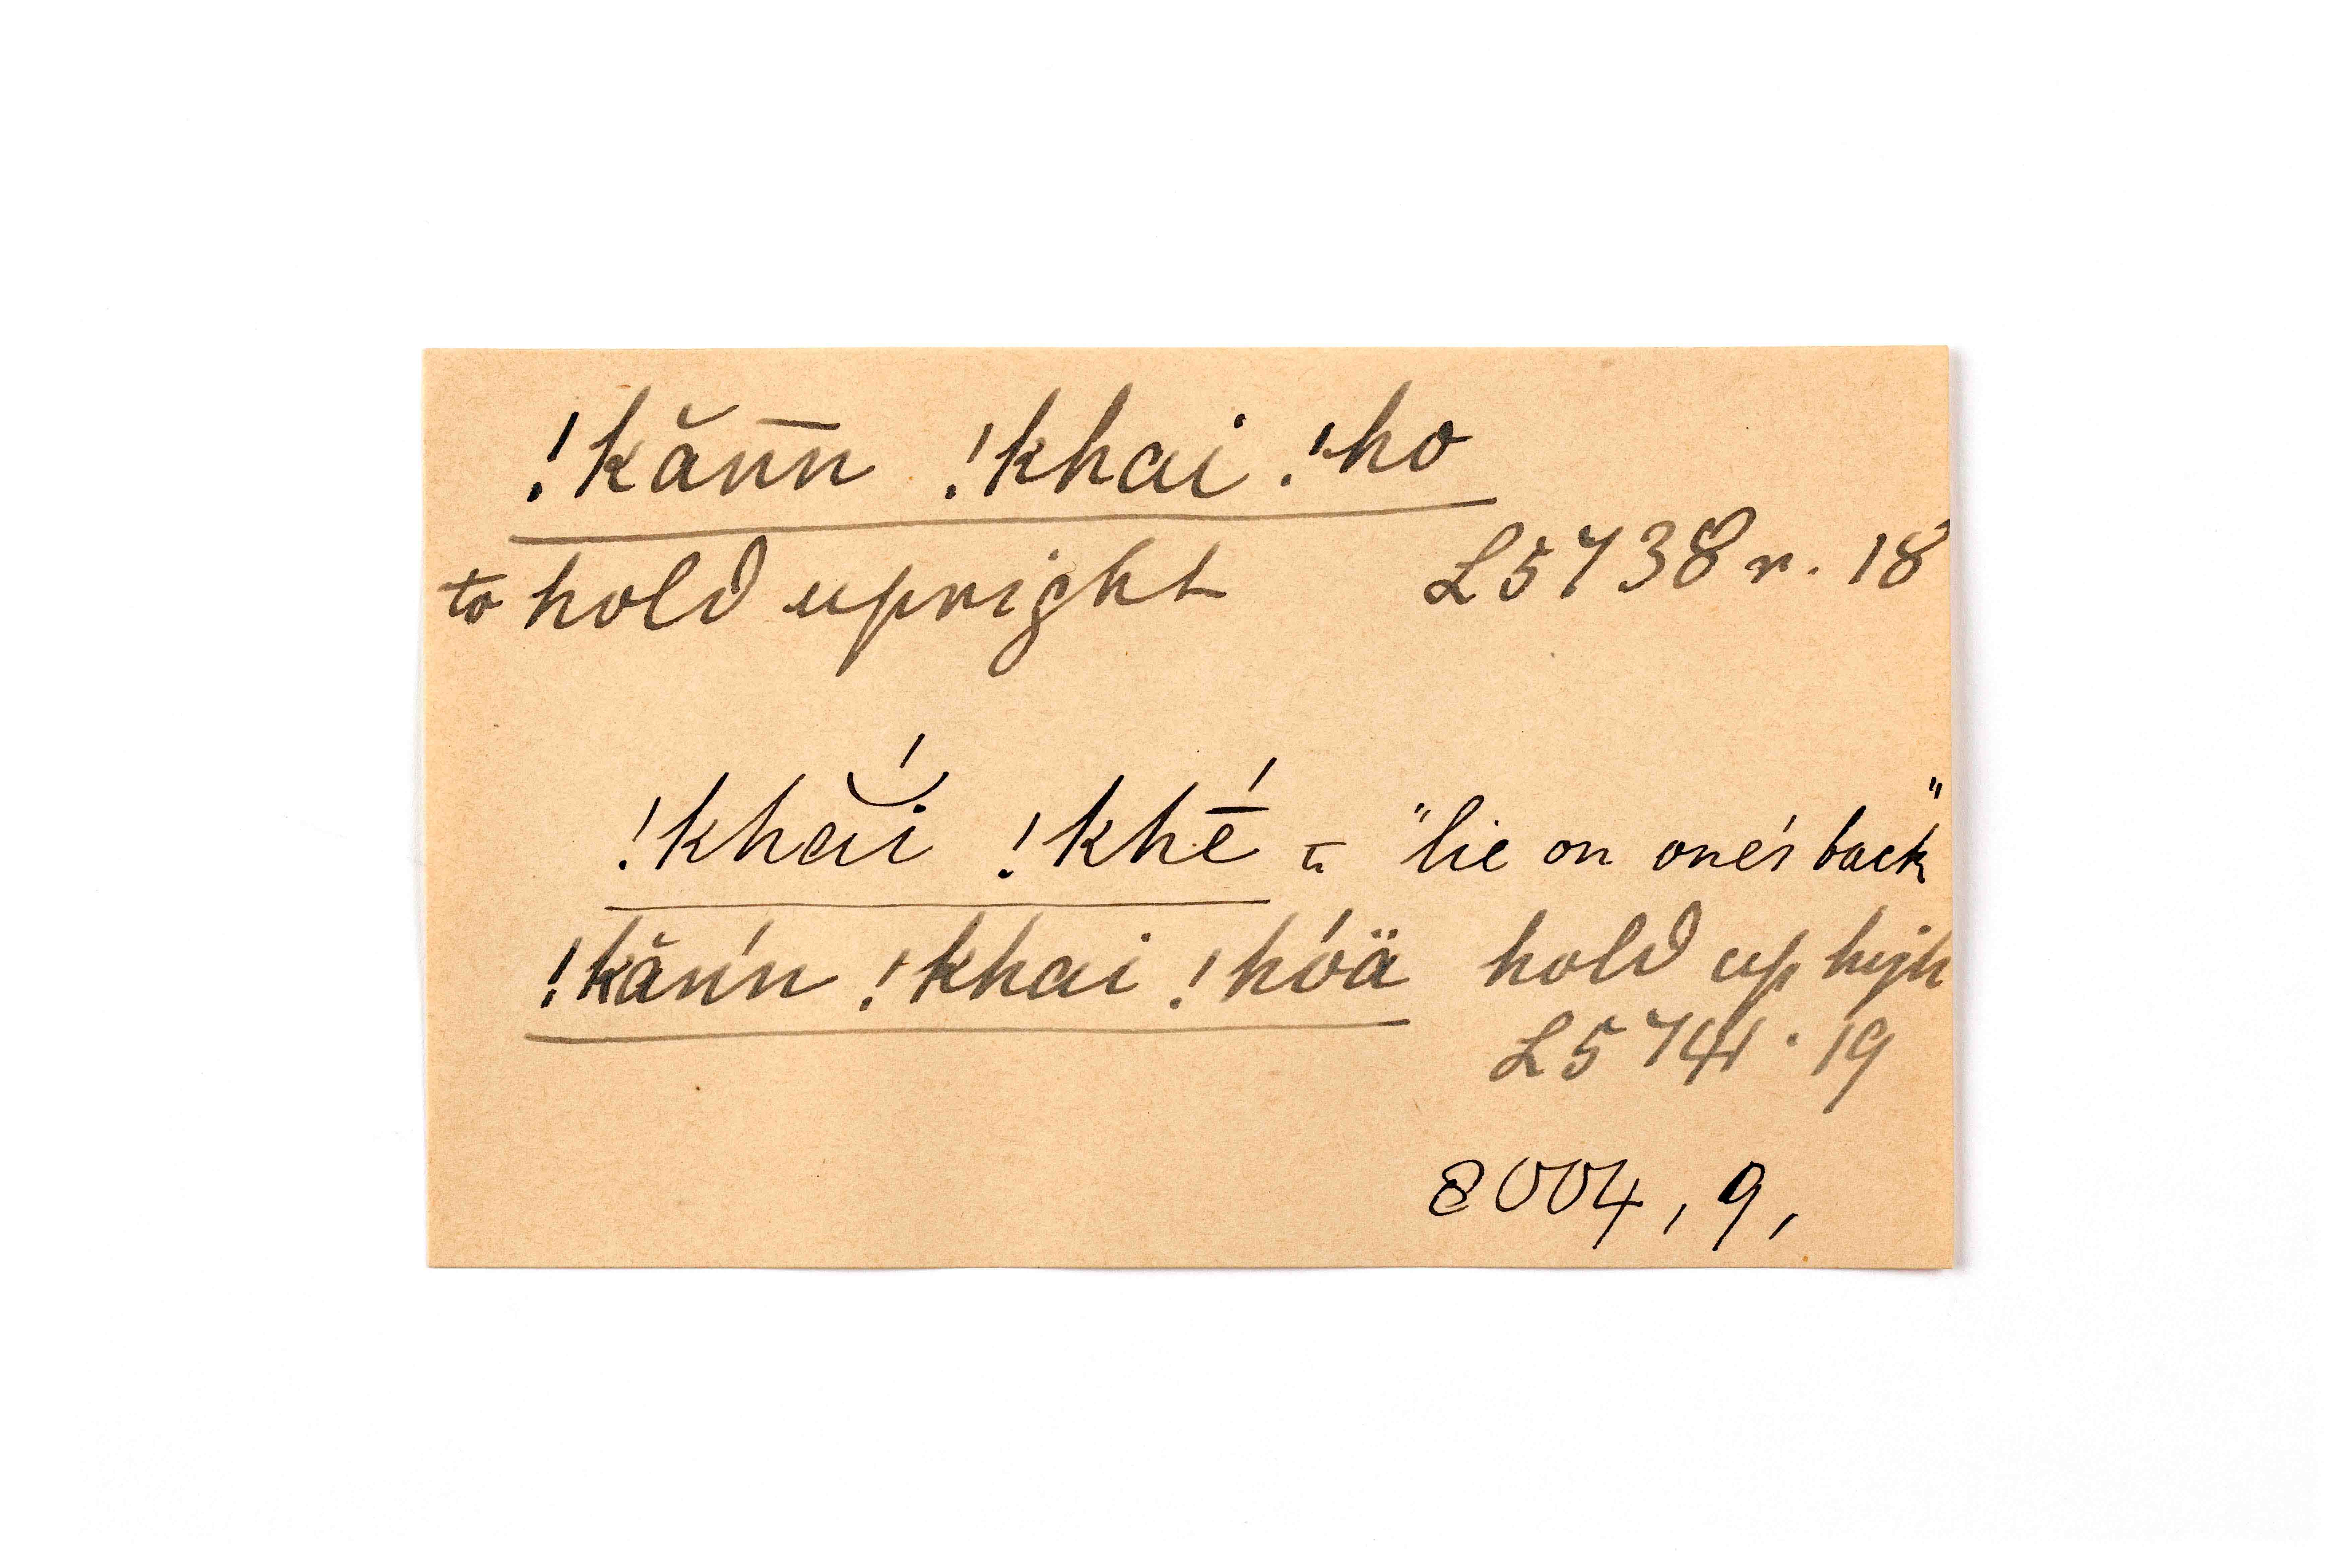 !kăn̄n !khai !ho
to hold upright L5738 r. 18
!khắi !khḗ = "lie on one's back"
!kăńn !khai !hóä hold up high
L5741 . 19
8004, 9,